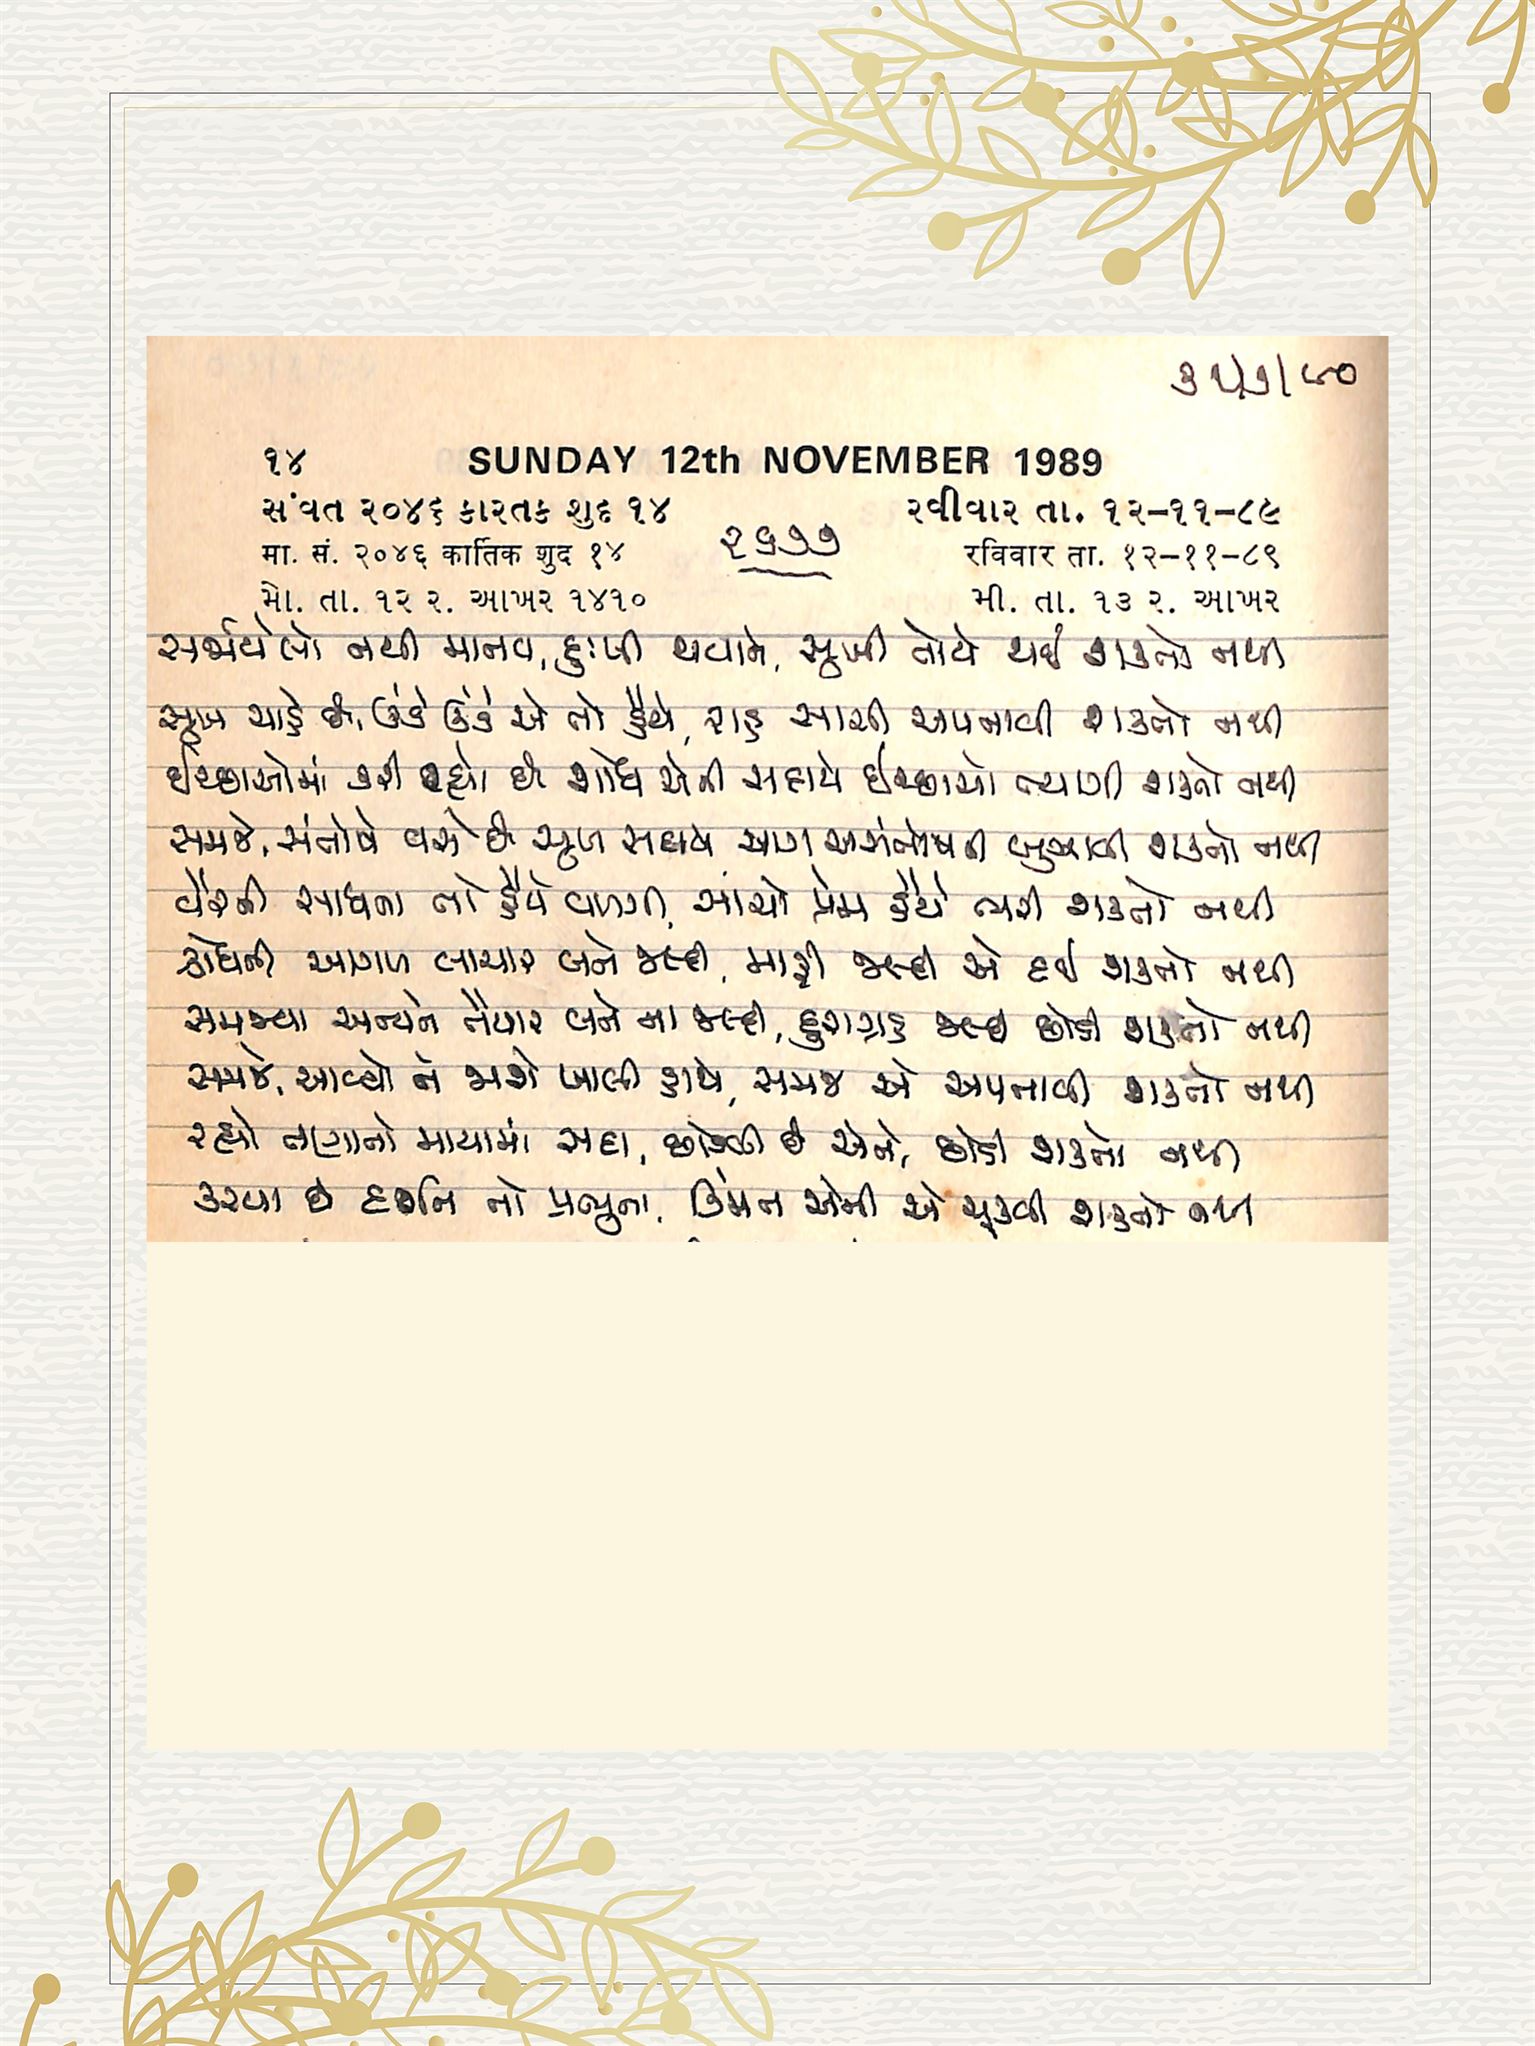 ૩૧/૭/૯૦
૧૪ SUNDAY 12th NOVEMBER 1989
સંવત ૨૦૪૬ કારતક શુદ ૧૪ રવીવાર તા. ૧૨-૧૧-૮૯
मा. सं. २०४६ कार्तिक शुद १४ रविवार ता. १२-११-८९
૨૬૭૭
મો. તા. ૧૨ ર. આખર ૧૪૧૦ મી. તા. ૧૩ ર. આખર
સર્જાયેલો નથી માનવ, દુઃખી થવાને, સુખી તોયે થઈ શકતો નથી
સુખ ચાહે છે, ઉંડે ઉંડે એ તો હૈયે, રાહ સાચી અપનાવી શકતો નથી
ઈચ્છાઓમાં કરી રહ્યો છે શોધ એની સદાયે ઈચ્છાઓ ત્યાગી શકતો નથી
સમજે, સંતોષે વસે છે સુખ સદાયે આગ અસંતોષની બુઝાવી શકતો નથી
વેરની સાધના તો હૈયે વળગી, સાચો પ્રેમ હૈયે ભરી શકતો નથી
ક્રોધની આગળ લાચાર બને જલ્દી, માફી જલ્દી એ દઈ શકતો નથી
સમજવા અન્યને તૈયાર બને ના જલ્દી, દુરાગ્રહ જલ્દી છોડી શકતો નથી
સમજે, આવ્યો ને જાશે ખાલી હાથે, સમજ એ અપનાવી શકતો નથી
રહ્યો તણાતો માયામાં સદા, છોડવી છે એને, છોડી શકતો નથી
કરવા છે દર્શન તો પ્રભુના, કિંમત એની એ ચૂકવી શકતો નથી